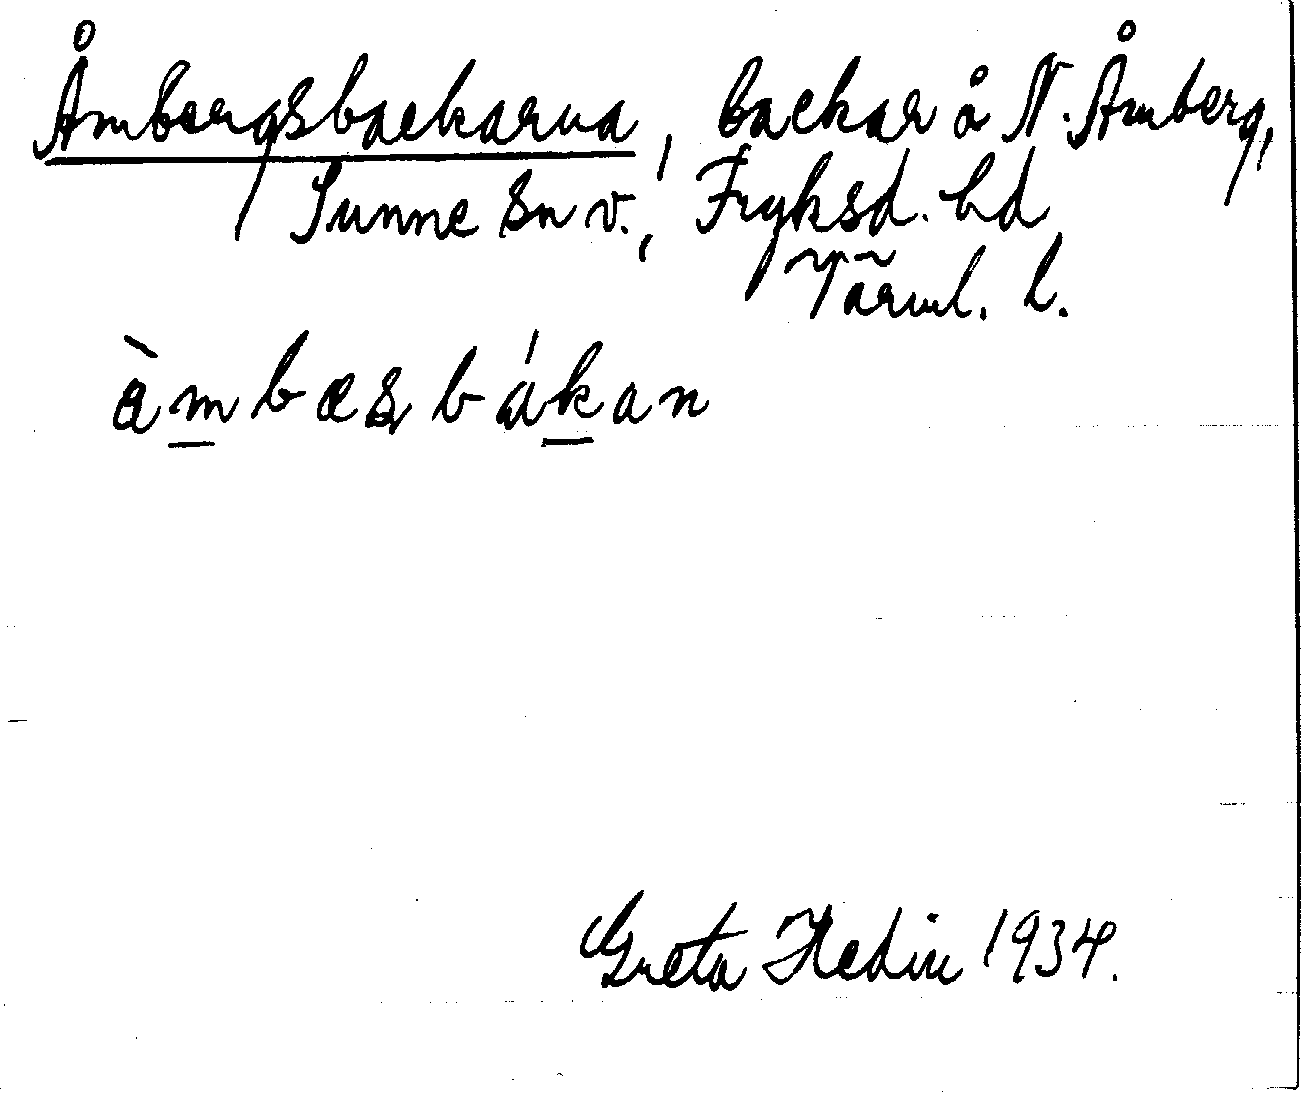 Åmbergsbackarna, backar å N. Åmberg,
Sunne sn v., Fryksd. hd
Värml. l.
àmbæsbákan
Greta Hedin 1934.